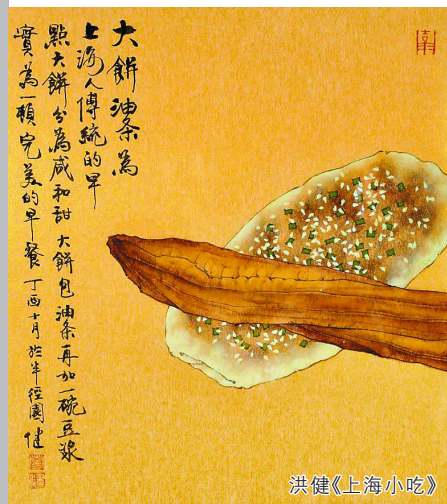 大餅油条為
上海人傳統的早
點大餅分為咸和甜 大餅包油条再加一碗豆漿
實為一頓完美的早餐 丁酉十月於半徑園 健
洪健《上海小吃》